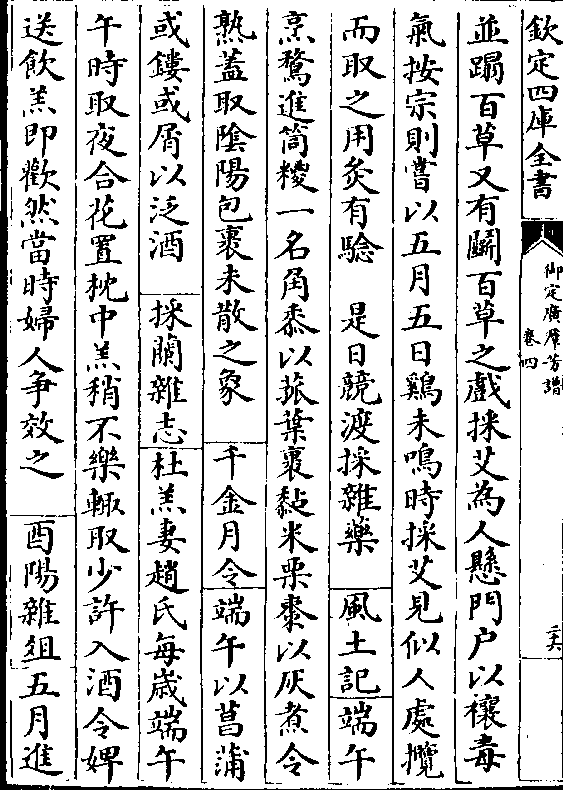 欽定四庫全書
御定廣羣芳譜
卷四
二六
並蹋百草又有鬭百草之戲採艾為人懸門户以禳毒
氣按宗則嘗以五月五日鷄未鳴時採艾見似人處攬
而取之用灸有驗　是日競渡採雜藥　風土記端午
烹鶩進筒糉一名角黍以菰葉裹黏米栗棗以灰煮令
熟蓋取隂陽包裹未散之象　千金月令端午以菖蒲
或鏤或屑以泛酒　採蘭雜志杜羔妻趙氏每歳端午
午時取夜合花置枕中羔稍不樂輙取少許入酒令婢
送飲羔即歡然當時婦人争效之　酉陽雜俎五月進